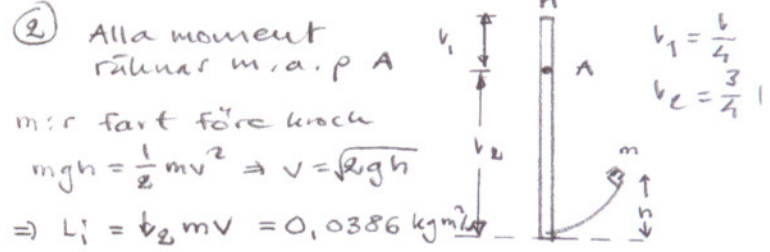 ② Alla moment
räknas m.a.p A
m:s fart före krock
mgh = ½ mv² ⇒ v = √2gh
⇒ Li = b₂ mv = 0,0386 kgm²/s
b₁
b₂
A
m
h
b₁ = b/4
b₂ = 3/4